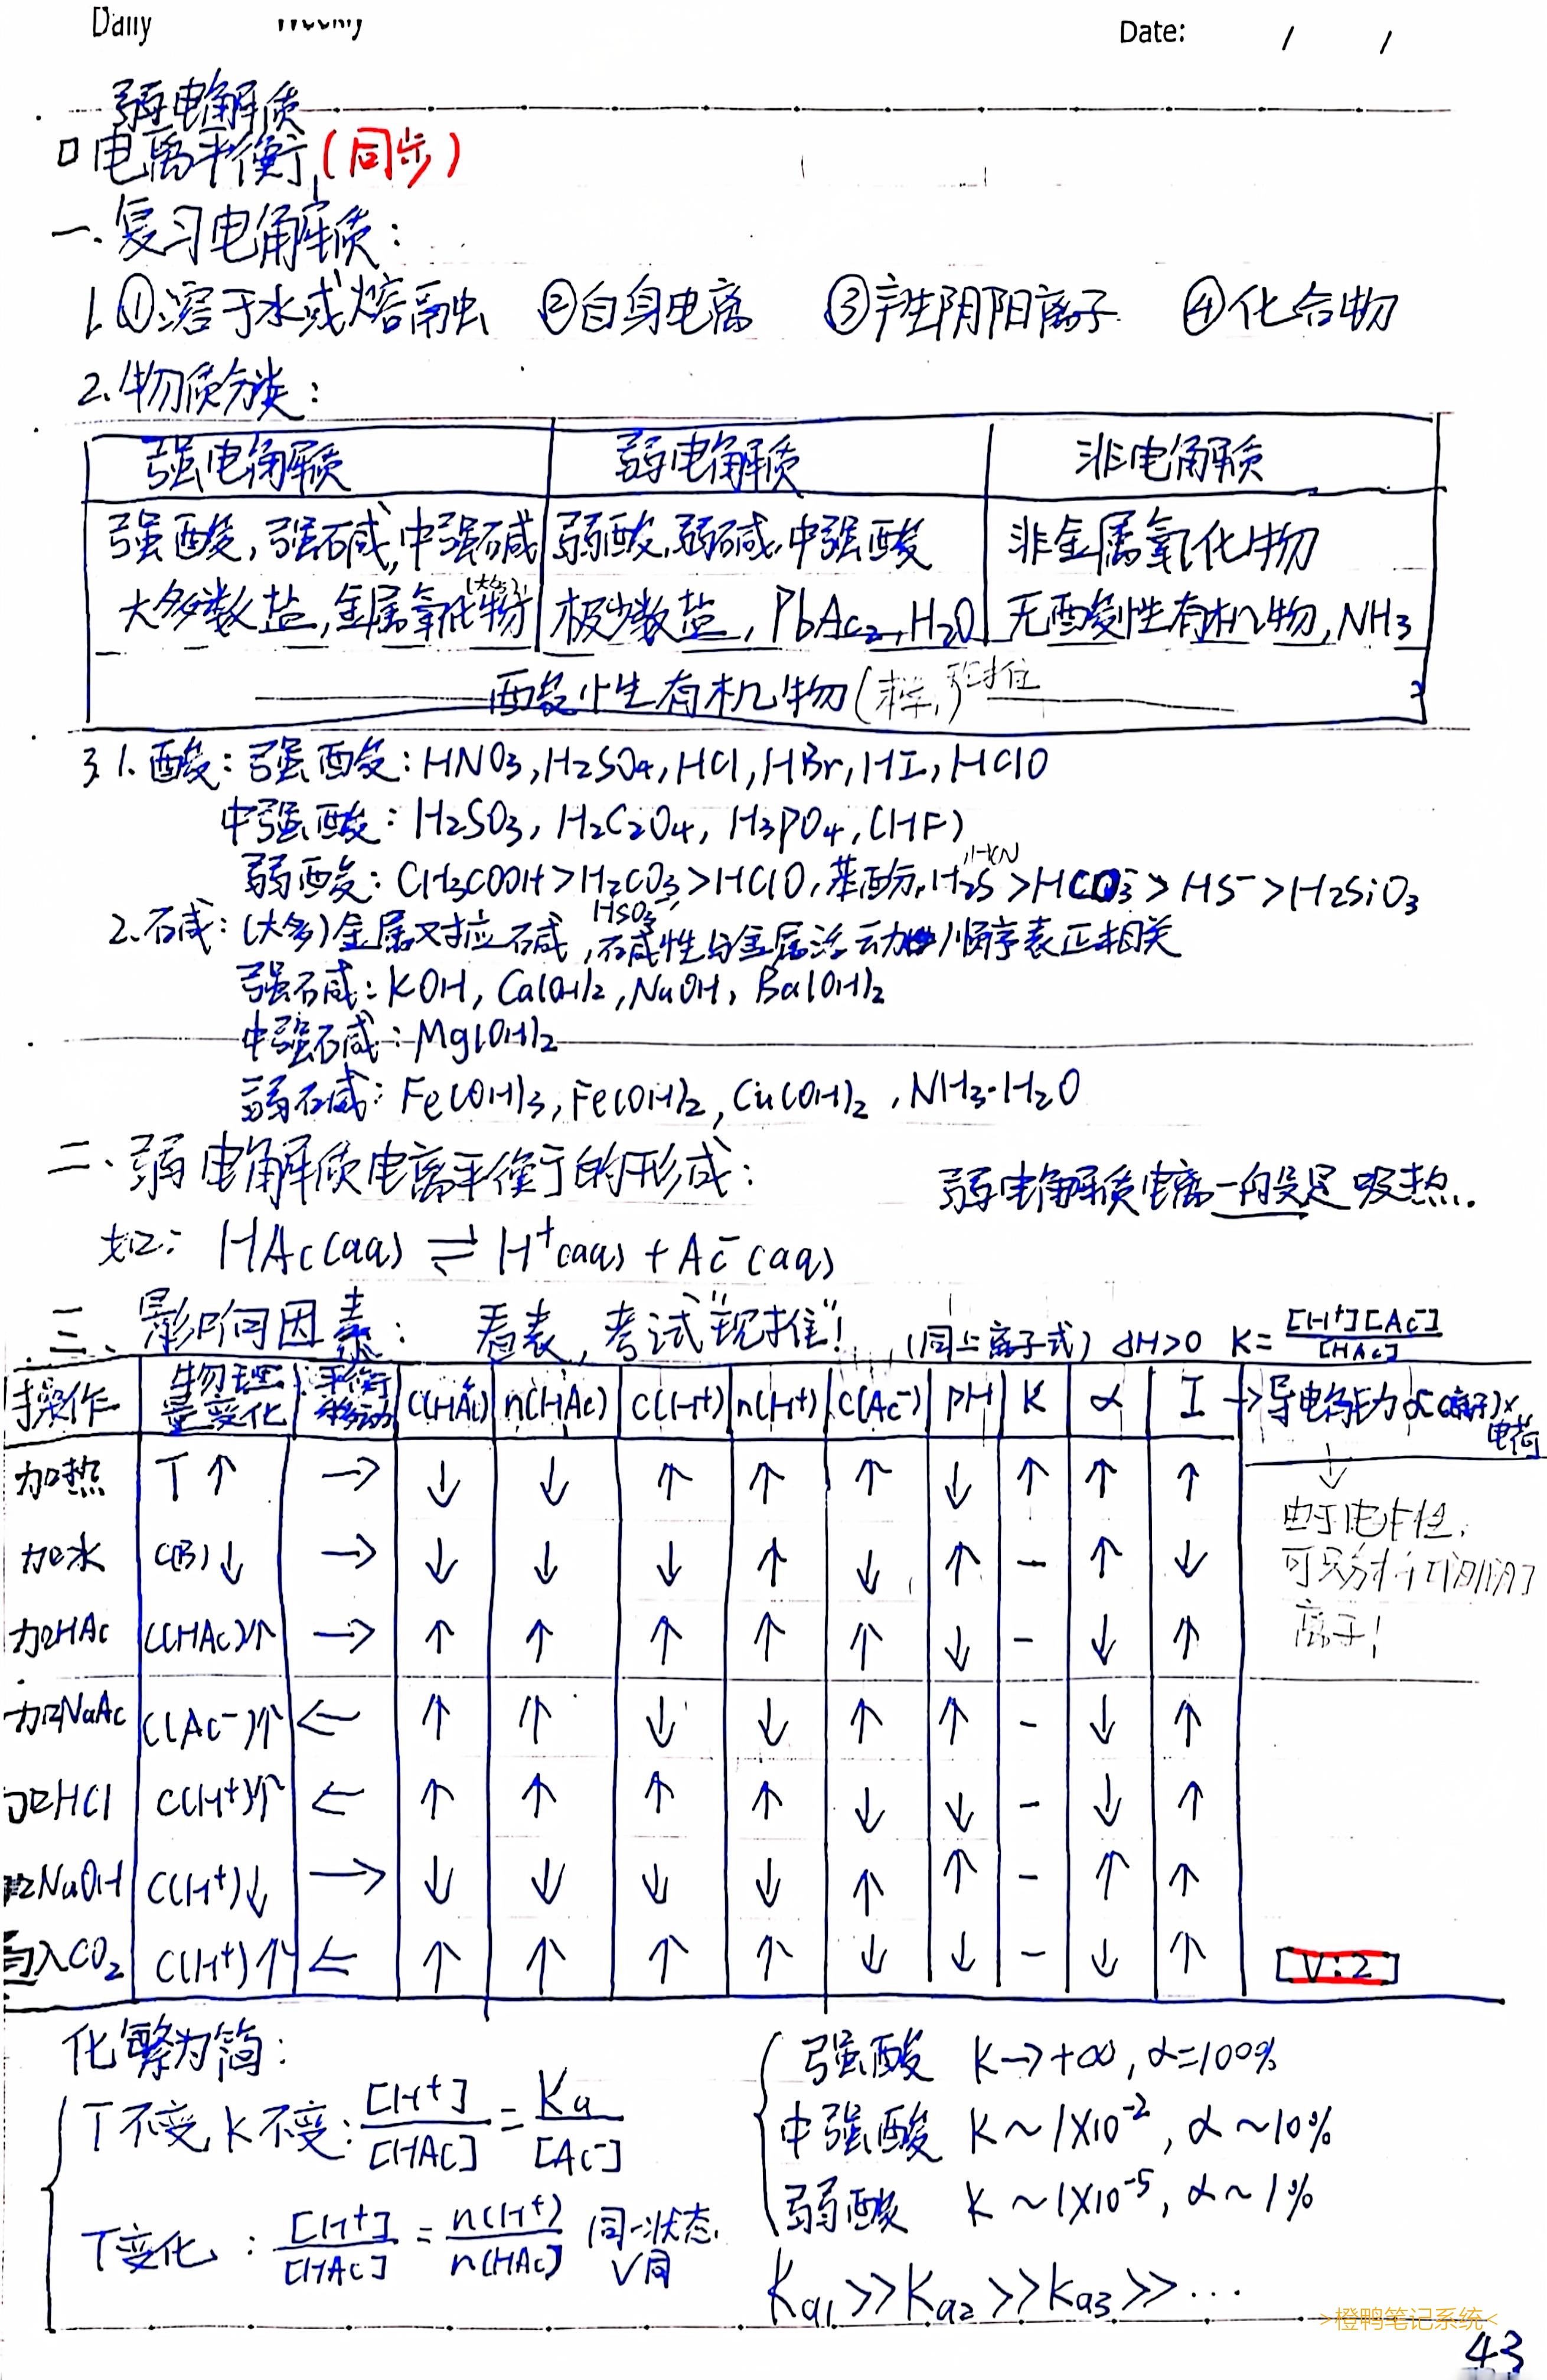 Daily
Date: / /
弱电解质
口电离平衡(同步)
一.复习电解质:
1.①溶于水或熔融 ②自身电离 ③产生阴阳离子 ④化合物
2.物质分类:
强电解质 弱电解质 非电解质
强酸,强碱,中强碱 弱酸,弱碱,中强酸 非金属氧化物
大多数盐,金属氧化物(大多) 极少数盐,PbAc₂,H₂O 无酸性有机物,NH₃
酸性有机物
3.1.酸:强酸:HNO₃,H₂SO₄,HCl,HBr,HI,HClO
中强酸:H₂SO₃,H₂C₂O₄,H₃PO₄,(HF)
弱酸:CH₃COOH>H₂CO₃>HClO,苯酚,H₂S>HCO₃⁻>HS⁻>H₂SiO₃
HSO₃⁻
2.碱:(大多)金属对应碱,碱性与金属活动顺序表正相关
强碱:KOH,Ca(OH)₂,NaOH,Ba(OH)₂
中强碱:Mg(OH)₂
弱碱:Fe(OH)₃,Fe(OH)₂,Cu(OH)₂,NH₃·H₂O
二、弱电解质电离平衡的形成:
弱电解质电离一般是吸热.
如:HAc(aq)⇌H⁺(aq)+Ac⁻(aq)
三、影响因素:看表,考试"现推"! (同上离子式) ΔH>0 K=[H⁺][Ac⁻]/[HAc]
操作 物理量变化 平衡移动 c(HAc) n(HAc) c(H⁺) n(H⁺) c(Ac⁻) pH K α I →导电能力∝c(离子)×电荷
加热 T↑ → ↓ ↓ ↑ ↑ ↑ ↓ ↑ ↑ ↑
加水 c(B)↓ → ↓ ↓ ↓ ↑ ↓ ↑ - ↑ ↓
加HAc c(HAc)↑ → ↑ ↑ ↑ ↑ ↑ ↓ - ↓ ↑
加NaAc c(Ac⁻)↑ ← ↑ ↑ ↓ ↓ ↑ ↑ - ↓ ↑
加HCl c(H⁺)↑ ← ↑ ↑ ↑ ↑ ↓ ↓ - ↓ ↑
加NaOH c(H⁺)↓ → ↓ ↓ ↓ ↓ ↑ ↑ - ↑ ↑
通入CO₂ c(H⁺)↑ ← ↑ ↑ ↑ ↑ ↓ ↓ - ↓ ↑
↓
由于电中性,
可只分析阳/阴
离子!
V:2
化繁为简:
T不变,K不变:[H⁺]/[HAc]=Ka/[Ac⁻]
T变化:[H⁺]/[HAc]=n(H⁺)/n(HAc) 同一状态,V同
强酸 K→+∞,α=100%
中强酸 K~1×10⁻²,α~10%
弱酸 K~1×10⁻⁵,α~1%
Ka1>>Ka2>>Ka3>>···
>橙鸭笔记系统<
43